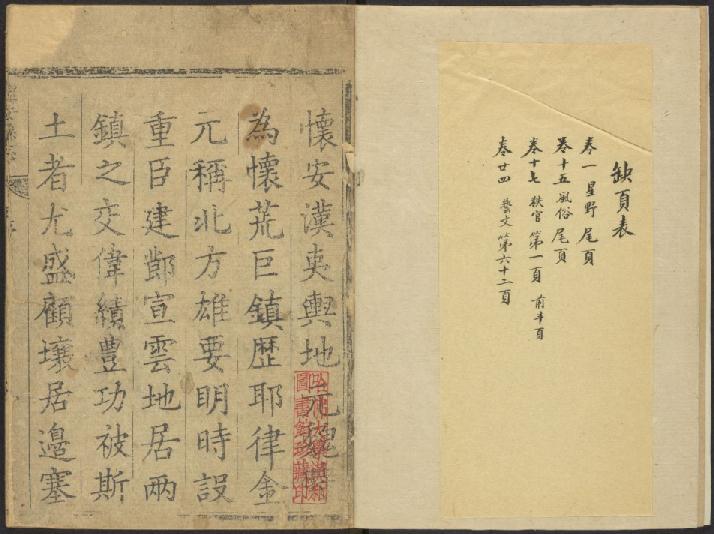 缺頁表
卷一 星野 尾頁
卷十五 風俗 尾頁
卷十七 秩官 第一頁 前半頁
卷廿四 藝文 第六十二頁
懷安漢夷輿地元魏
為懷荒巨鎮歷耶律金
元稱北方雄要明時設
重臣建鄼宣雲地居兩
鎮之交偉績豊功被斯
土者尤盛顧壤居邊塞
哈佛大學漢和
圖書館珍藏印